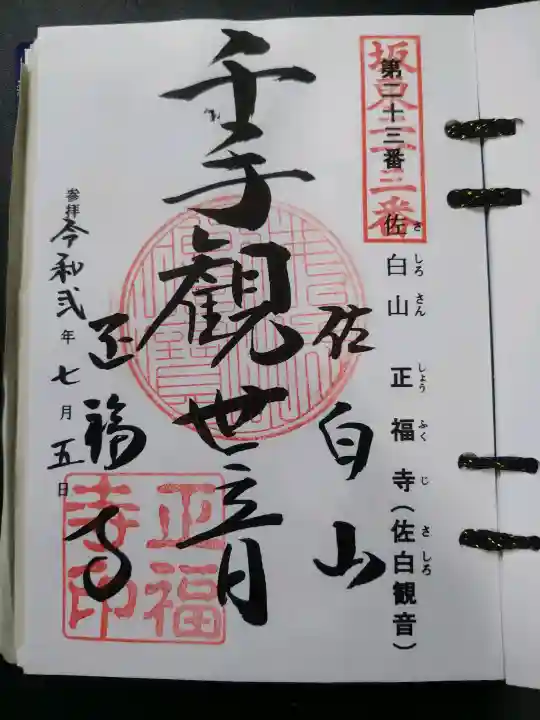 坂東三十三番
第二十三番 佐白山 正福寺(佐白観音)
さ しろ さん しょう ふく じ さ しろ
佐白山
千手観世音
正福寺
参拝 令和弐年七月五日
正福
寺印